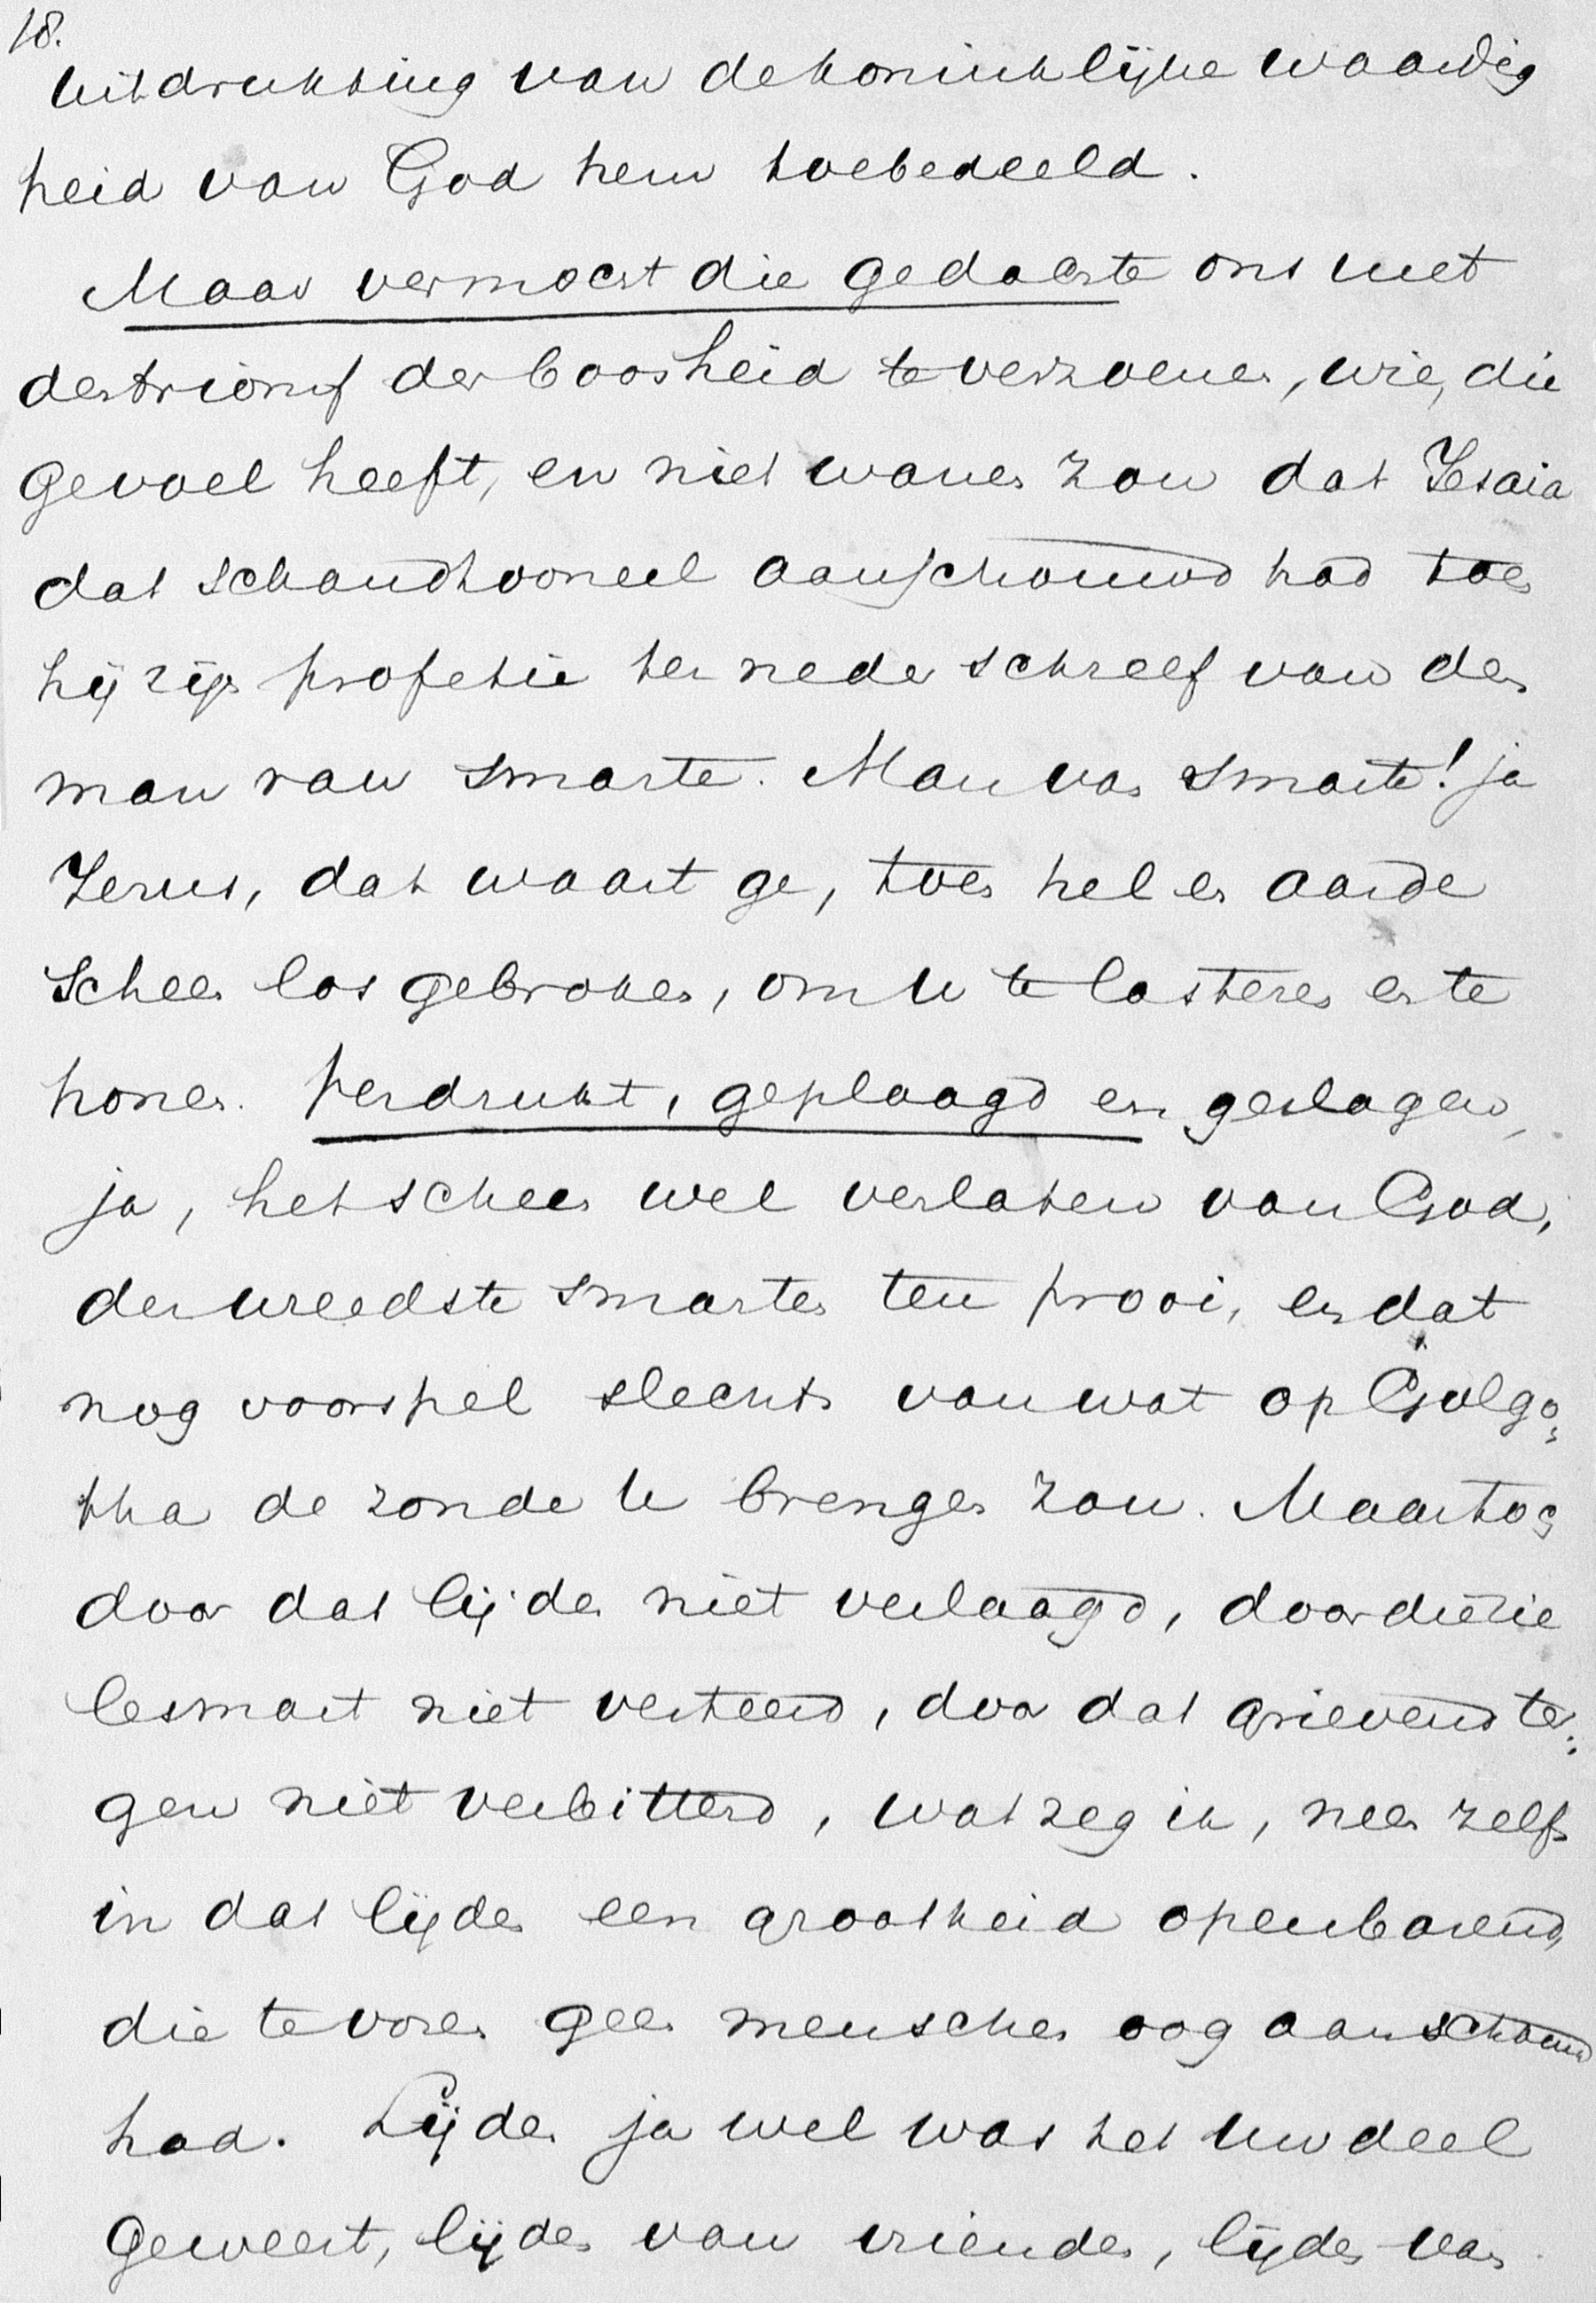 18.
uitdrukking van de koninklijke waardig
heid van God hem toebedeeld.
Maar vermocht die gedachte ons met
den triomf der boosheid te verzoenen, wie, die
gevoel heeft, en niet wanen zou dat Jesaia
dat schandtooneel aanschouwd had toen
hij zijn profetie ter neder schreef van den
man van smarte. Man van smarte! ja
Jezus, dat waart ge, toen hel en aarde
scheen los gebroken, om U te lasteren en te
honen. Verdrukt, geplaagd en geslagen,
ja, het scheen wel verlaten van God,
der wreedste smarten ten prooi, en dat
nog voorspel slechts van wat op Golgo:
tha de zonde U brengen zou. Maar toch
door dat lijden niet verlaagd, door die zie
lesmart niet verteerd, door dat grievend te:
gen niet verbitterd, wat zeg ik, neen zelfs
in dat lijden een grootheid openbarend,
die te voren geen menschen oog aanschouwd
had. Lijden ja wel was het Uw deel
geweest, lijden van vrienden, lijden van